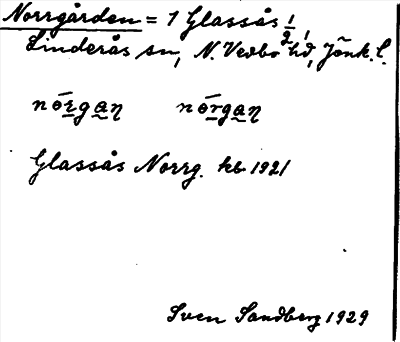 Norrgården = 1 Glassås 1/2,
Linderås sn, N. Vedbo hd, Jönk. l.
nór̲ga̰ŋ nór̲ga̰ŋ
Glassås Norrg. kb 1921
Sven Sandberg 1929